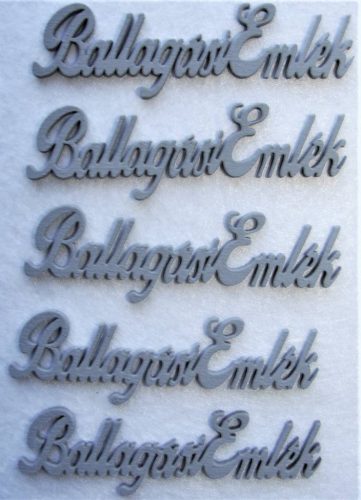 Ballagási Emlék
Ballagási Emlék
Ballagási Emlék
Ballagási Emlék
Ballagási Emlék